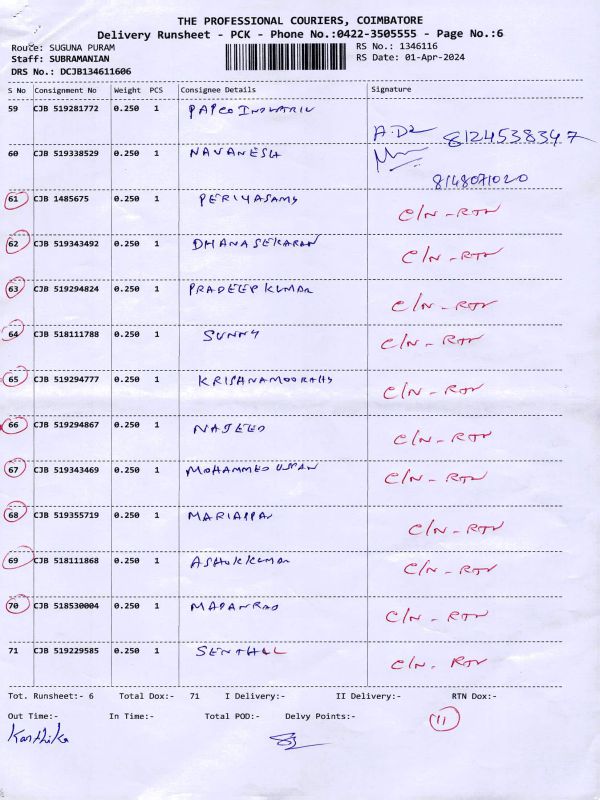 THE PROFESSIONAL COURIERS, COIMBATORE
Delivery Runsheet - PCK - Phone No.:0422-3505555 - Page No.:6
Route: SUGUNA PURAM RS No.: 1346116
Staff: SUBRAMANIAN RS Date: 01-Apr-2024
DRS No.: DCJB134611606
S No Consignment No Weight PCS Consignee Details Signature
59 CJB 519281772 0.250 1 PAPCO
8124538347
60 CJB 519338529 0.250 1 NAVANESH
8148071020
61 CJB 1485675 0.250 1 PERIYASAMY C/N - RTN
62 CJB 519343492 0.250 1 DHANASEKARAN C/N - RTN
63 CJB 519294824 0.250 1 PRADEEP KUMAR C/N - RTN
64 CJB 518111788 0.250 1 SUNNY C/N - RTN
65 CJB 519294777 0.250 1 C/N - RTN
66 CJB 519294867 0.250 1 C/N - RTN
67 CJB 519343469 0.250 1 MOHAMMED C/N - RTN
68 CJB 519355719 0.250 1 MARIAPPAN C/N - RTN
69 CJB 518111868 0.250 1 ASHOKKUMAR C/N - RTN
70 CJB 518530004 0.250 1 C/N - RTN
71 CJB 519229585 0.250 1 SENTHIL C/N - RTN
Tot. Runsheet:- 6 Total Dox:- 71 I Delivery:- II Delivery:- RTN Dox:-
Out Time:- In Time:- Total POD:- Delvy Points:- 11
Karthika